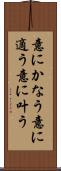 意にかなう意に
適う意に叶う